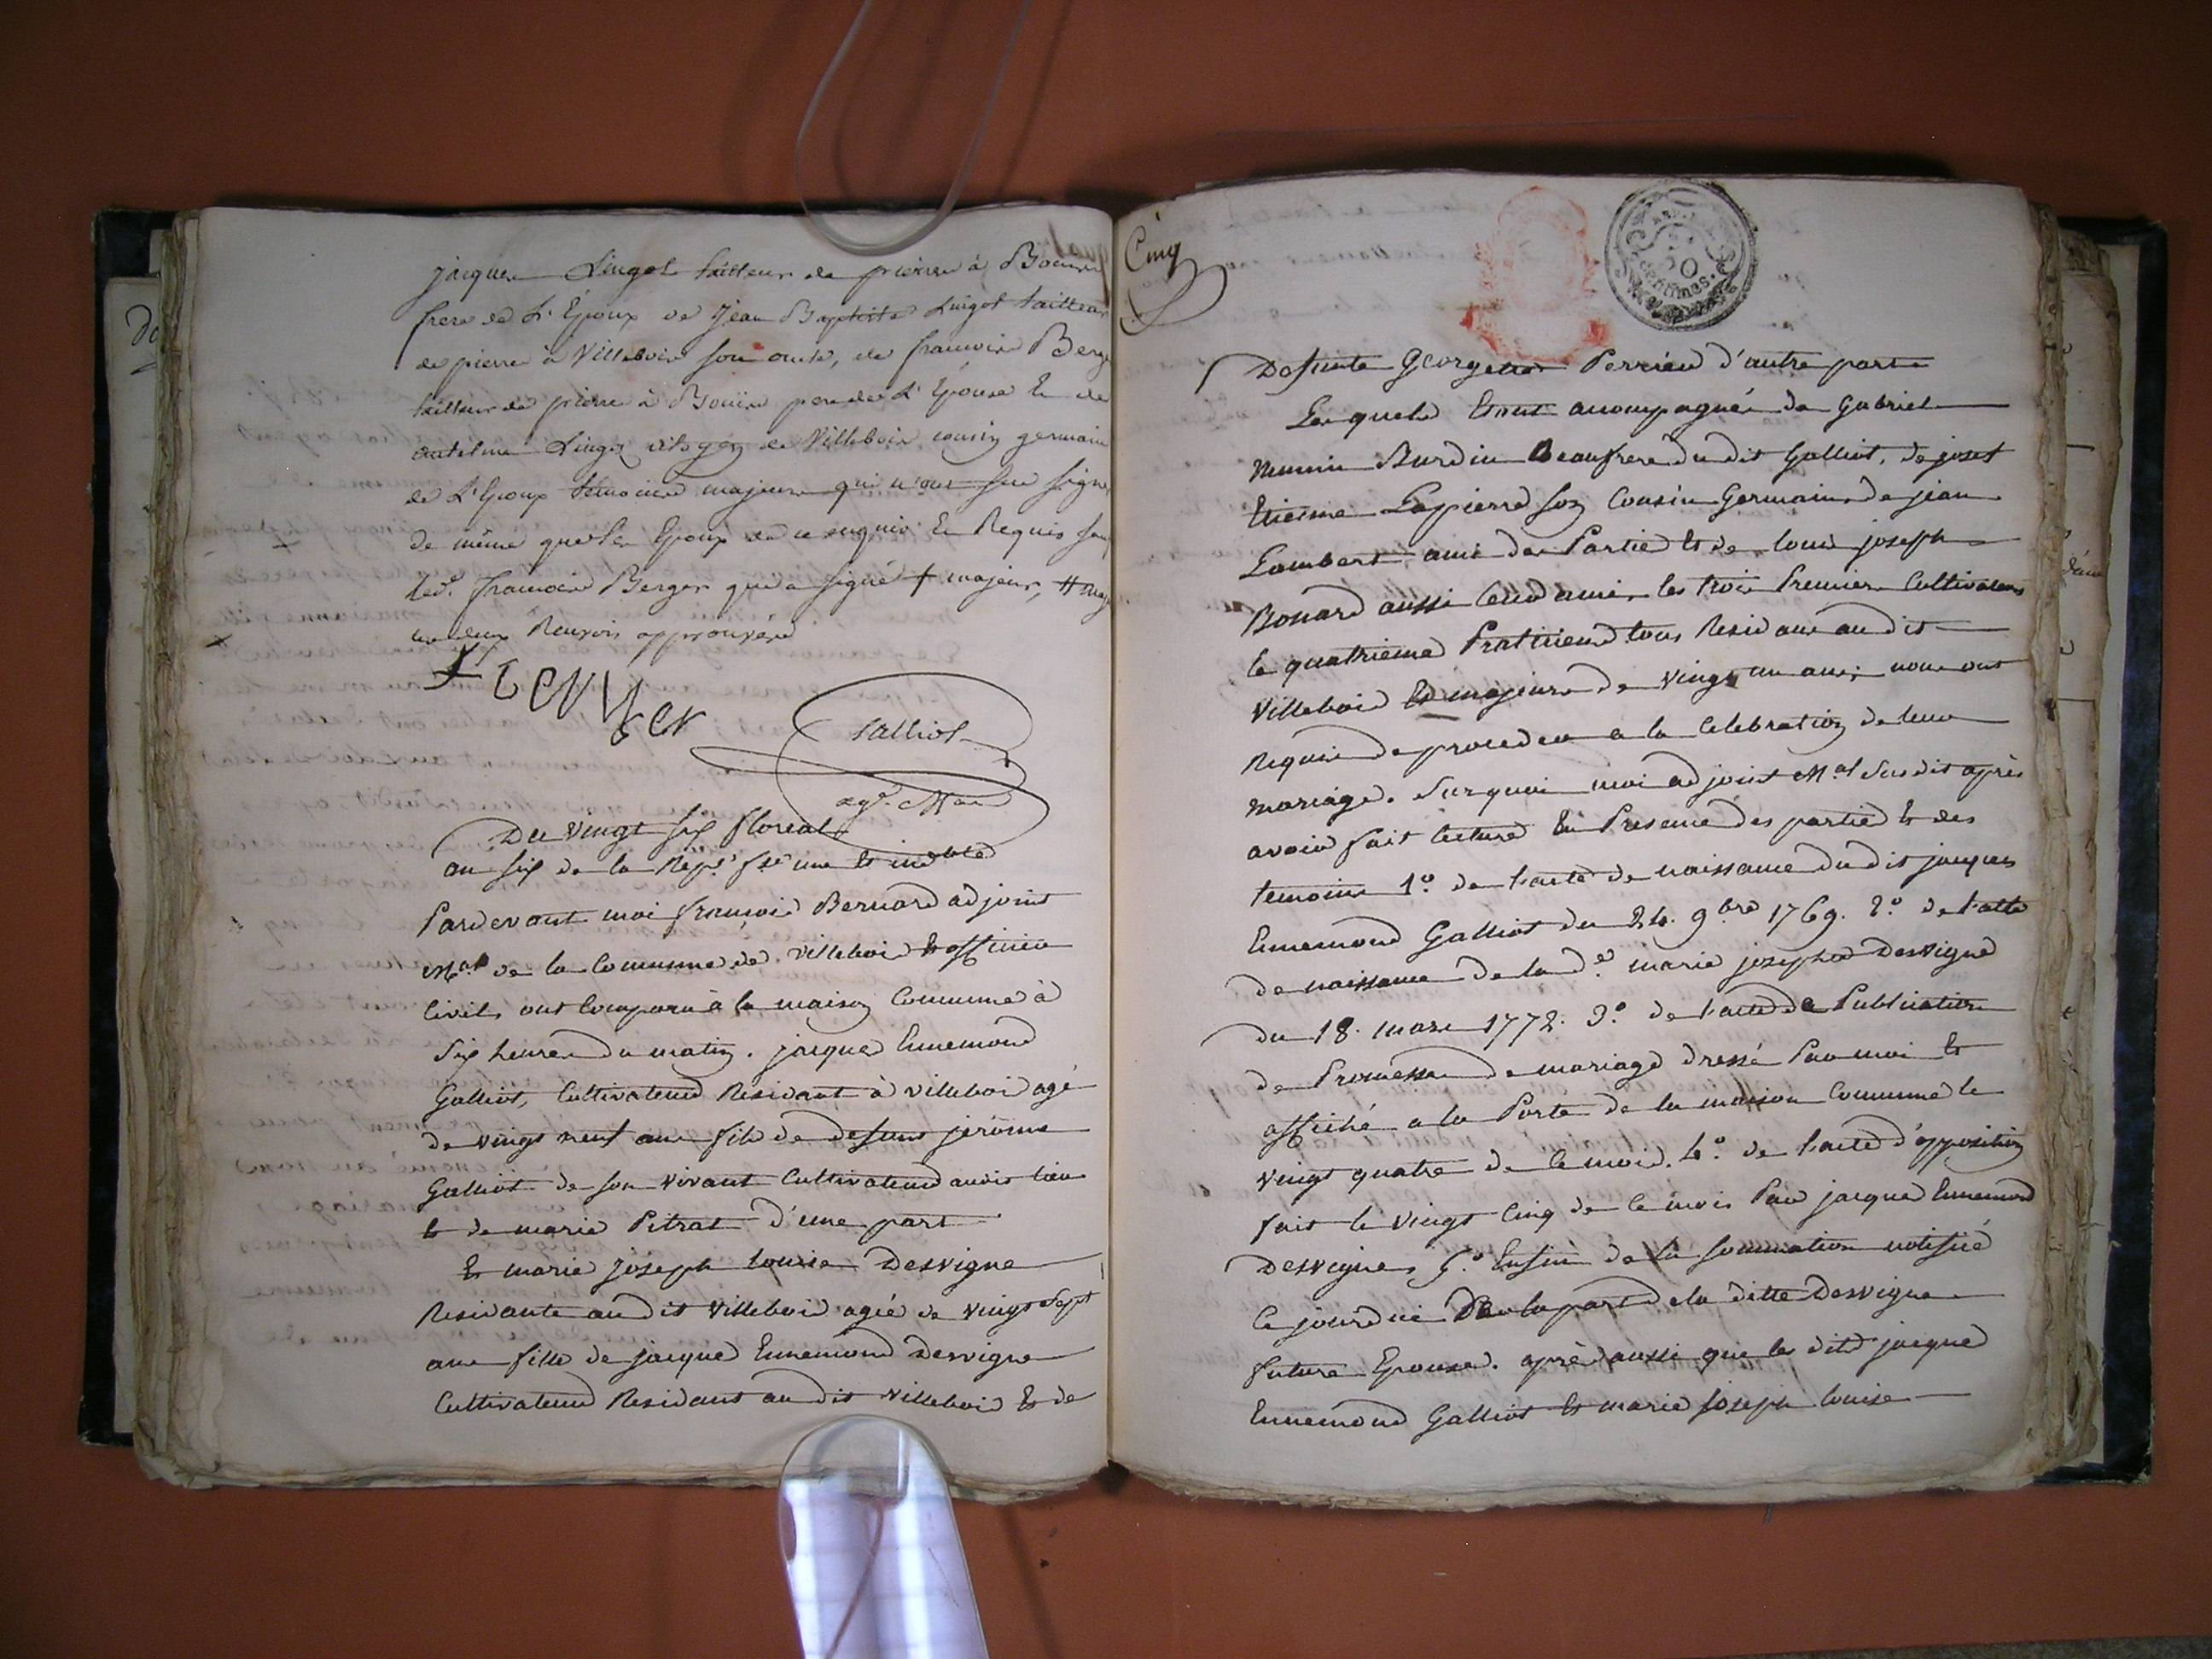 jacques Lingot tailleur de pierre à Bouiss
frere de L'Epoux de Jean Baptiste Lingot tailleur
de pierre à Villebois son oncle, de francois Berge
tailleur de pierre à Bouis pere de L'Epouse Et de
antelme Lingot citoyen de Villebois cousin germain
de L'Epoux temoins majeurs qui n'ont su signer
de même que les Epoux de ce enquis Et Requis sauf
led. francois Berger qui a signé + majeur, #
les deux Renvois approuvéed
f berger
Galliot
agt. Mal
Du vingt six floreal
an six de la Rep.e f.se une et indble
Pardevant moi françois Bernard adjoint
M.al de la Commune de Villebois et officier
Civil, ont Comparu à la maison Commune à
Six heures du matin. jacque Ennemond
Galliot, Cultivateur Residant à villeboi agé
de vingt neuf ans fils de defunt jerôme
Galliot de son vivant Cultivateur audit lieu
et de marie Pitrat d'une part
Et marie joseph louise Desvigne
Residante au dit villeboi agée de vingt Sept
ans fille de jacque Ennemond Desvigne
Cultivateur Residant au dit villeboi Et de
Cinq
50
centimes
Defunte Georgette Perrieu d'autre part
Lesquels Etant acompagnés de Gabriel
Burdin Beaufrere du dit Galliot, de josef
Etienne Lapierre son Cousin Germain, de jean
Lambert ami des Parties et de louis joseph
Bonard aussi leur ami, les trois Premiers Cultivateurs
le quatrieme Praticien tous Residans au dit
Villeboi Et majeurs de vingt un ans; nous ont
Requis de proceder a la Celebration de leur
mariage. Surquoi moi adjoint M.al Susdit après
avoir fait lecture En Presence des parties et des
temoins 1.º de l'acte de naissance du dit jacques
Ennemond Galliot du 24. 9.bre 1769. 2.º de l'acte
de naissance de la d.e marie josephe Desvigne
du 18. mars 1772. 3.º de l'acte de Publication
de Promesse de mariage dressé Par moi et
affiché a la Porte de la maison Commune le
vingt quatre de ce mois. 4.º de l'acte d'opposition
fait le vingt Cinq de ce mois Par jacque Ennemond
Desvigne, 5.º Enfin de la sommation notifié
Ce jourdui De la part de la ditte Desvigne
future Epouse. après aussi que les dits jacque
Ennemond Galliot et marie joseph louise